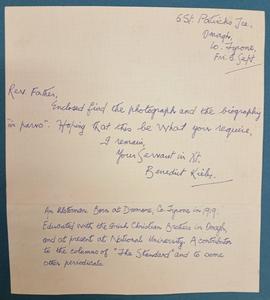 5 St. Patricks Tce.
Omagh,
Co. Tyrone,
Fri. Sept.
Rev. Father,
Enclosed find the photograph and the biography
"in parvo". Hoping that this be what your require,
I remain,
Your Servant in Xt.
Benedict Kiely.
An Ulsterman. Born at Dromore, Co. Tyrone in 1919.
Educated with the Irish Christian Brothers in Omagh,
and at present at National University. A contributor
to the columns of "The Standard" and to some
other periodicals.